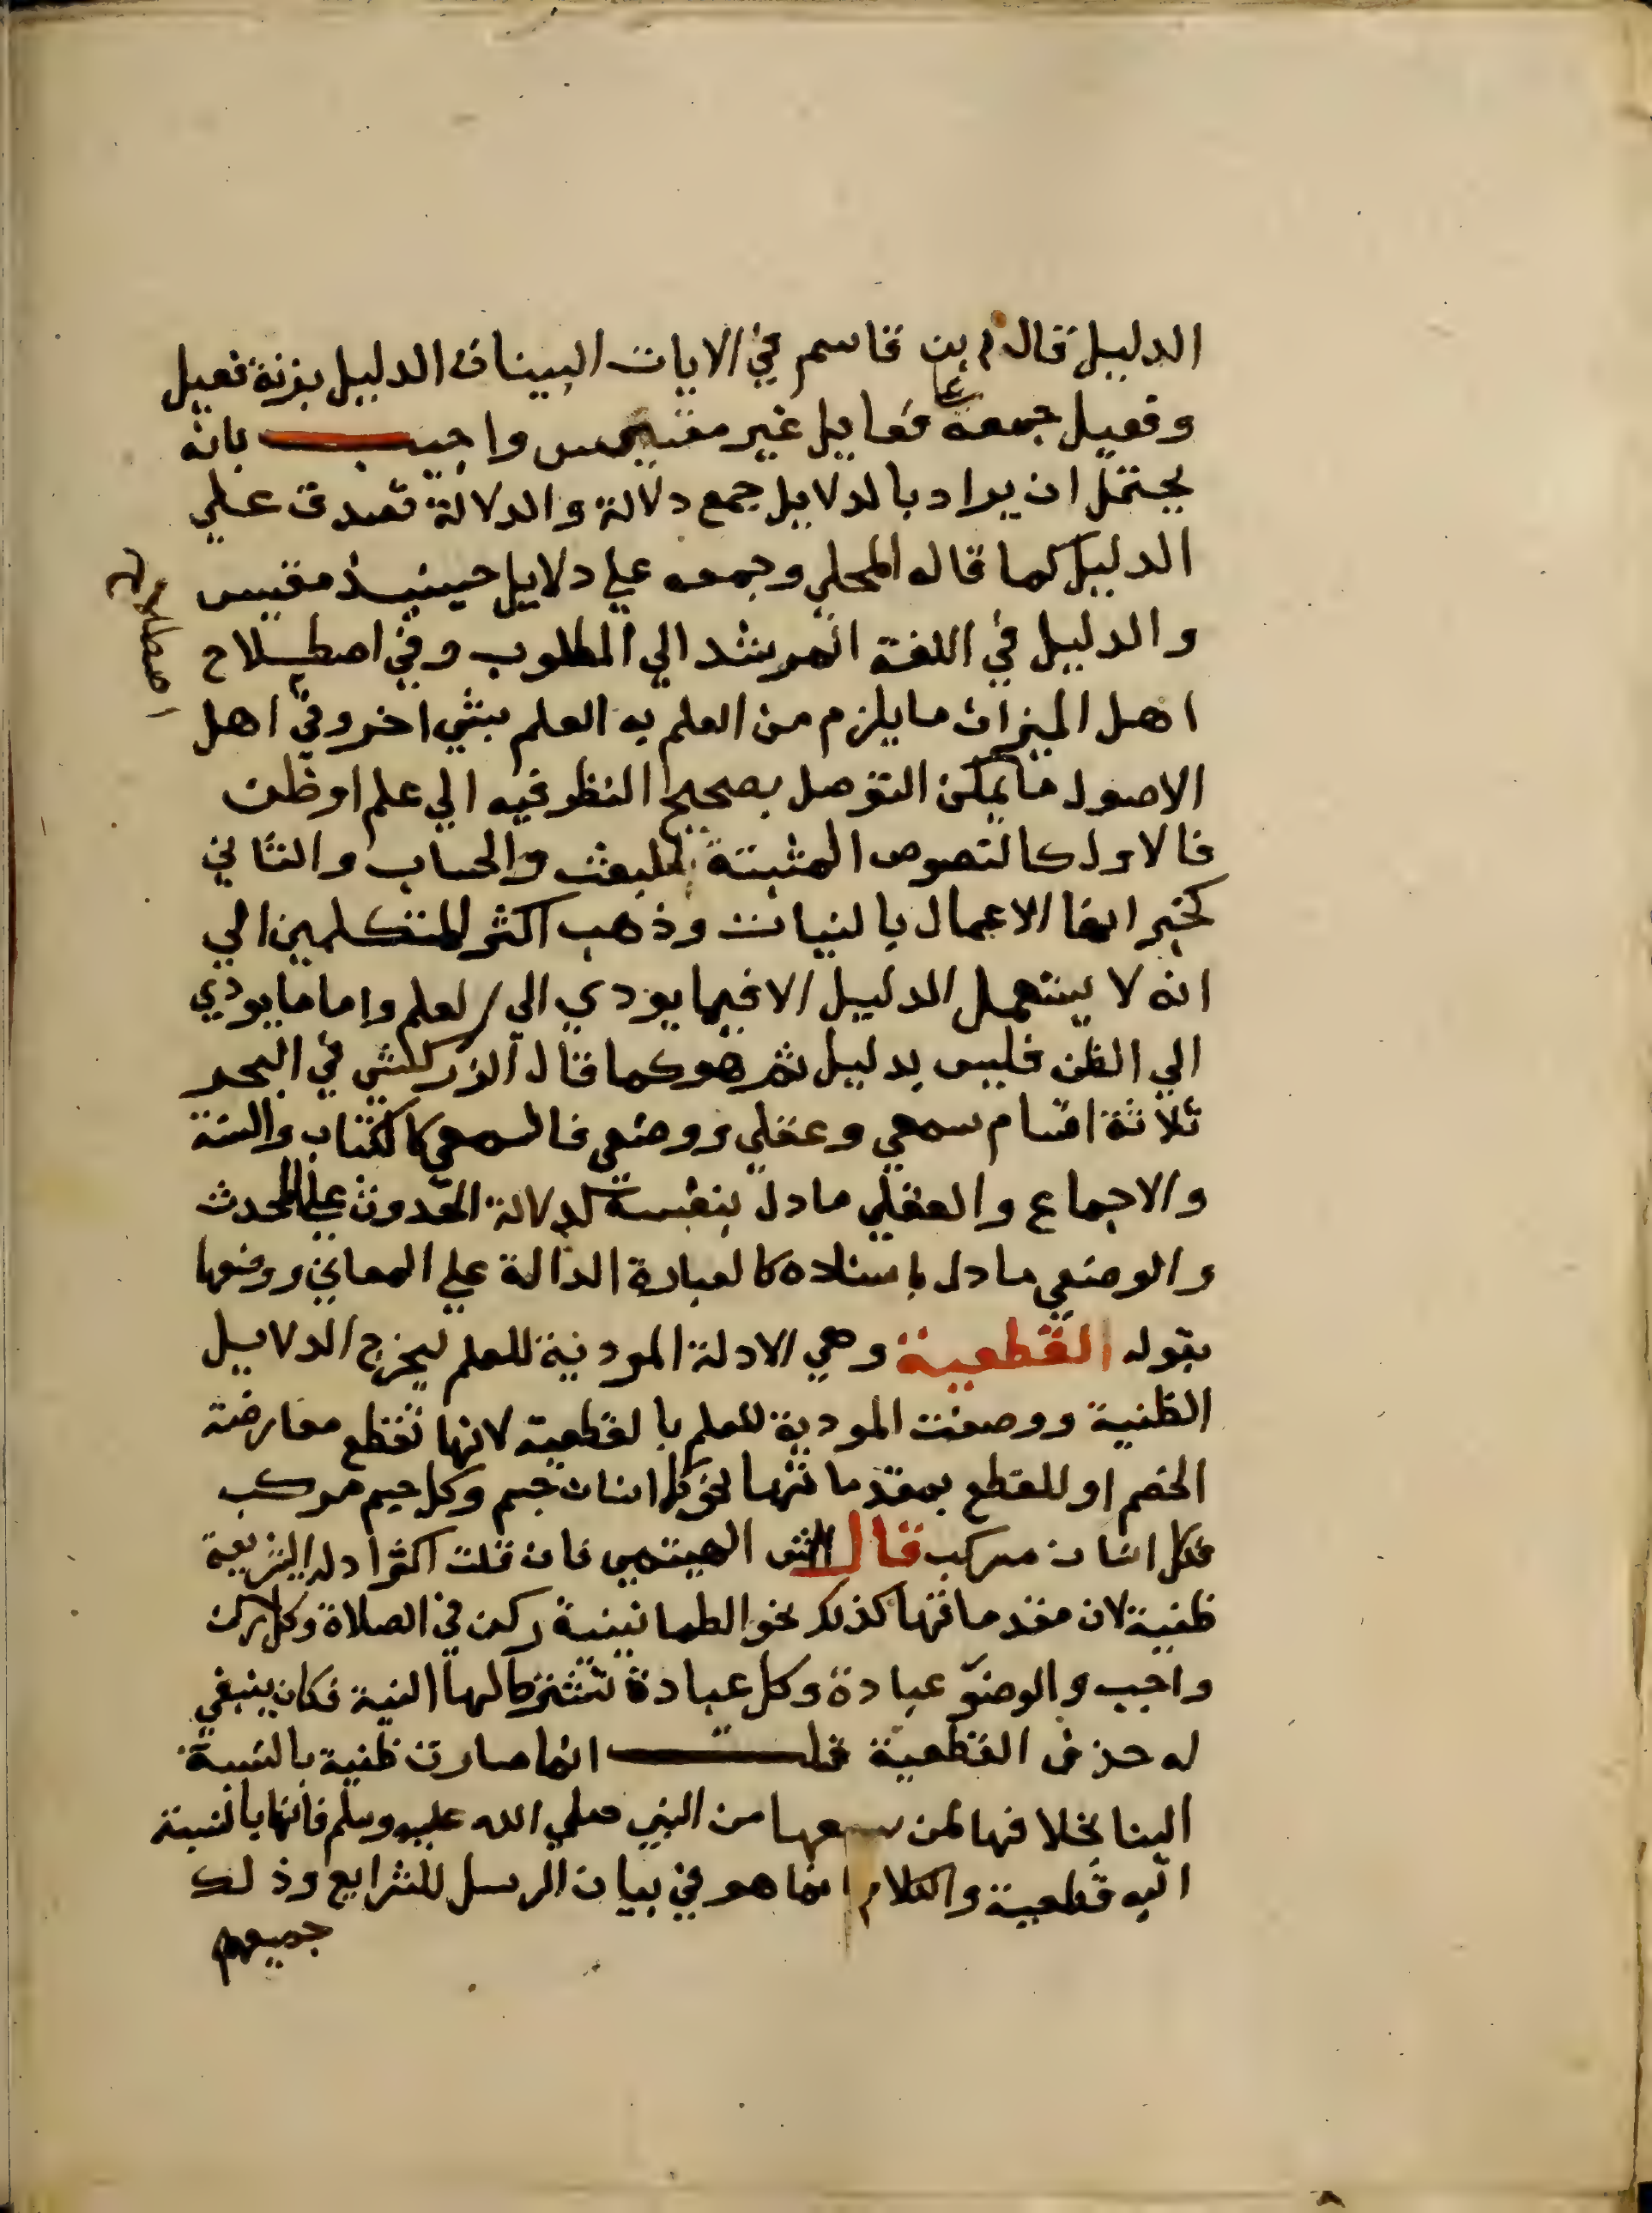 الدليل قال ابن قاسم في الايات البينات الدليل بزنة فعيل
وفعيل جمعه علي فعايل غير مقيس واجيب بانه
يحتمل ان يراد بالدلايل جمع دلالة والدلالة تصدق علي
الدليل كما قاله المحلي وجمعه علي دلايل حينيذ مقيس
والدليل في اللغة المرشد الي المطلوب وفي اصطلاح
اهل الميزان ما يلزم من العلم به العلم بشي اخر وفي اهل
اصطلاح
الاصول ما يمكن التوصل بصحيح النظر فيه الي علم او ظن
فالاول كالنصوص المثبتة للبعث والحساب والثاني
كخبر انما الاعمال بالنيات وذهب اكثر المتكلمين الي
انه لا يستعمل الدليل الا فيما يودي الي العلم واما ما يودي
الي الظن فليس بدليل ثم هو كما قال الزركشي في البحر
ثلاثة اقسام سمعي وعقلي ووضعي فالسمعي كالكتاب والسنة
والاجماع والعقلي ما دل بنفسه كدلالة الحدوث علي المحدث
والوضعي ما دل باسناده كالعبارة الدالة علي المعاني ووصفها
بقوله القطعية وهي الادلة المودية للعلم ليخرج الدلايل
الظنية ووصفت المودية للعلم بالقطعية لانها تقطع معارضة
الخصم او للقطع بمقدماتها نحو كل انسان جسم وكل جسم مركب
فكل انسان مركب قال الش الهيتمي فان قلت اكثر ادلة الشريعة
ظنية لان مقدماتها كذلك نحو الطمانينة ركن في الصلاة وكل ركن
واجب والوضو عبادة وكل عبادة تشترط لها النية فكان ينبغي
له حذف القطعية قلت انما صارت ظنية بالنسبة
الينا بخلافها لمن سمعها من النبي صلي الله عليه وسلم فانها بالنسبة
اليه قطعية والكلام انما هو في بيان الرسل للشرايع وذلك
جميعهم